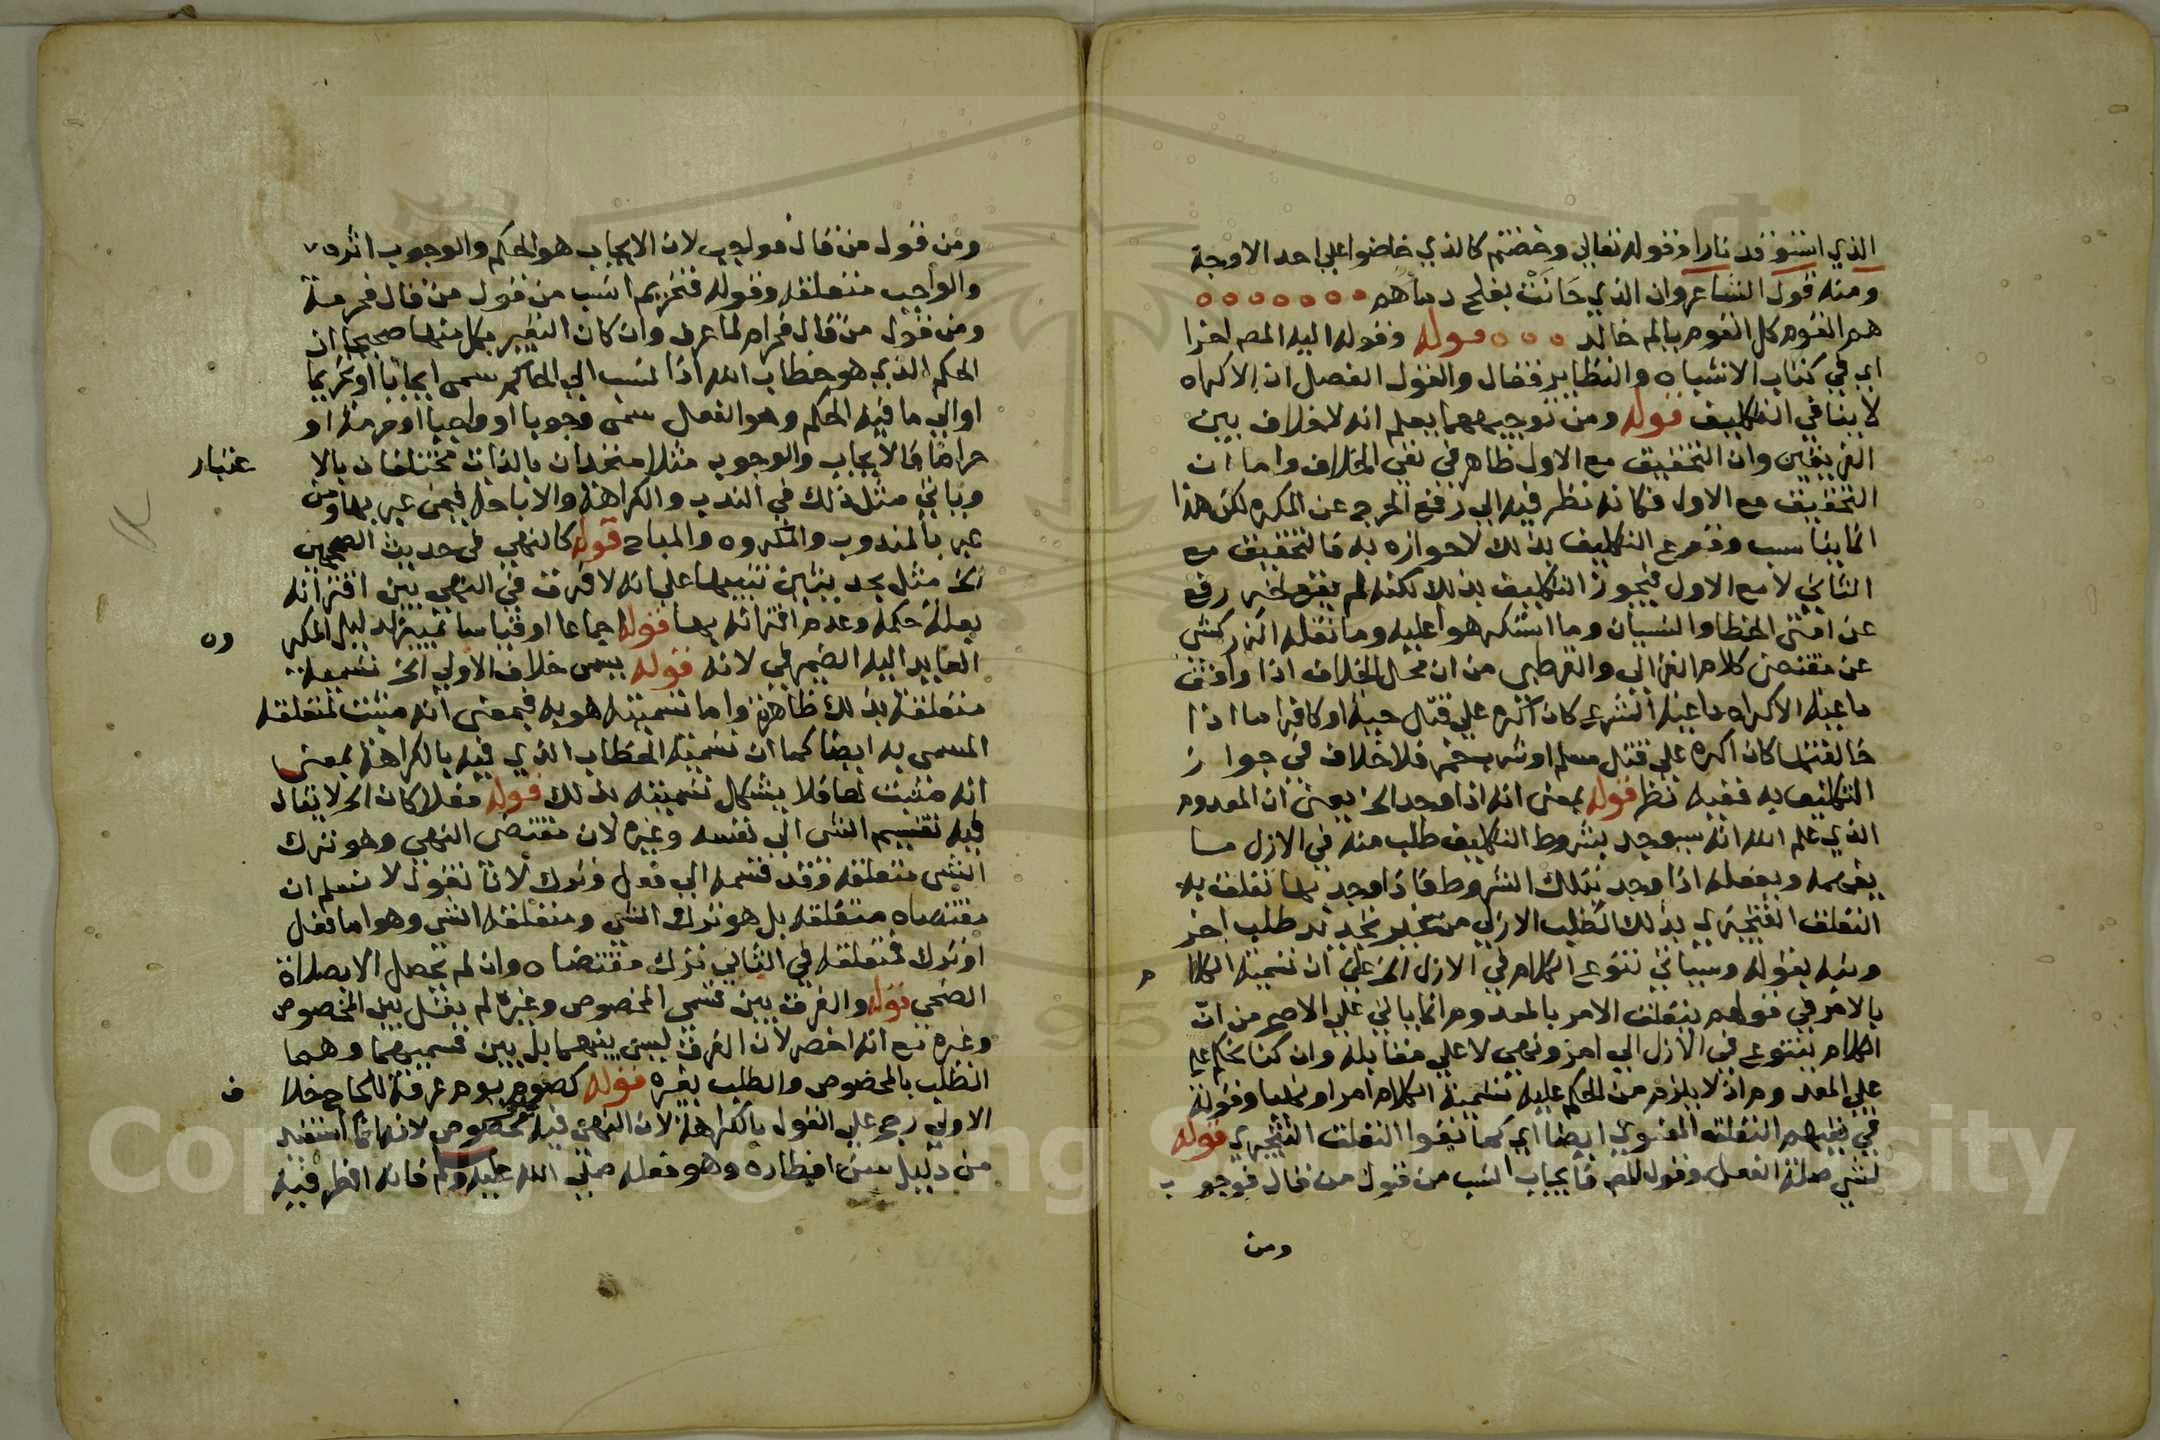 الذي استوقد نارا وقوله تعالى وخضتم كالذي خاضوا على احد الاوجة
ومنه قول الشاعر وان الذي حَانَتْ بفلج دماهم
هم القوم كل القوم يا ام خالد قوله وقوله اليه المصـ اخرا
اي في كتاب الاشباه والنظاير فقال والقول الفصل ان الاكراه
لا ينافي التكليف قوله ومن توجيههما يعلم انه لا خلاف بين
الفريقين وان التحقيق مع الاول ظاهر في نفي الخلاف واما ان
التحقيق مع الاول فكانه نظر فيه الى رفع الحرج عن المكره لكن هذا
انما يناسب وقوع التكليف بذلك لا جوازه به فالتحقيق مع
الثاني لا مع الاول فيجوز التكليف بذلك لكنه لم يقع لخبر رفع
عن امتى الخطا والنسيان وما استكرهوا عليه وما نقله الزركشى
عن مقتضى كلام الغزالي والقرطبي من ان محل الخلاف اذا وافق
داعية الاكراه داعية الشرع كان اكره على قتل حية او كافر اما اذا
خالفتها كان اكره على قتل مسلم او شرب خمر فلا خلاف في جواز
التكليف به ففيه نظر قوله بمعنى انه اذا وجد الخ يعنى ان المعدوم
الذي علم الله انه سيوجد بشروط التكليف طلب منه في الازل ما
يفهمه ويفعله اذا وجد بتلك الشروط فاذا وجد بها تعلق به
التعلق التنجيزي بذلك الطلب الازلي من غير تجدد طلب اخر
ونبه بقوله وسياتي تنوع الكلام في الازل الخ على ان تسمية الكلا م
بالامر في قولهم يتعلق الامر بالمعدوم انما ياتي على الاصح من انّ
الكلام يتنوع في الازل الى امر ونهي لا على مقابله وان كنا نحكم عليه
على المعدوم اذ لا يلزم من الحكم عليه تسمية الكلام امرا ونهيا وقوله
في نفيهم التعلق المعنوي ايضا اي كما نفوا التعلق التنجيزي قوله
لشي صلة الفعل وقوله للمص فايجاب انسب من قول من قال فوجوب
ومن
ومن قول من قال فواجب لان الايجاب هو الحكم والوجوب اثره
والواجب متعلقه وقوله فتحريم انسب من قول من قال فحرمة
ومن قول من قال فحرام لما عرف وان كان التعبير بكل منها صحيحا ان
الحكم الذي هو خطاب الله اذا نسب الي الحاكم سمى ايجابا او تحريما
او الي ما فيه الحكم وهو الفعل سمى وجوبا او واجبا او حرمة او
حراما فالايجاب والوجوب مثلا متحدان بالذات مختلفان بالا عتبار
وياتي مثل ذلك في الندب والكراهة والاباحة فيمن عبر بها ومن
عبر بالمندوب والمكروه والمباح قوله كالنهي في حديث الصحيحين
الخ مثل بحديثين تنبيها على انه لا فرق في النهي بين اقترانه
بعلة حكمه وعدم اقترانه بها قوله اجماعا او قياسا تمييز لدليل المكر وه
العايد اليه الضمير في لانه قوله يسمى خلاف الاولي الخ تسمية
متعلقه بذلك ظاهرة واما تسميته هو به فبمعنى انه مثبت لمتعلقه
المسمى به ايضا كما ان تسمية الخطاب الذي فيه بالكراهة بمعنى
انه مثبت لها فلا يشكل تسميته بذلك قوله فعلا كان الخ لا يقال
فيه تقسيم الشى الي نفسه وغيره لان مقتضى النهي وهو ترك
الشى متعلقه وقد قسمه الي فعل وترك لانا نقول لا نسلم ان
مقتضاه متعلقه بل هو ترك الشى ومتعلقه الشى وهو اما فعل
او ترك فمتعلقه في الثاني ترك مقتضاه وان لم تحصل الا بصلاة
الضحي قوله والفرق بين قسمى المخصوص وغيره لم يقل بين المخصوص
وغيره مع انه اخصر لان الفرق ليس بينهما بل بين قسميهما وهما
الطلب بالمخصوص والطلب بغيره قوله كصوم يوم عرفة للحاج خلا ف
الاولي رجح علي القول بالكراهة لان النهي فيه مخصوص لانه انما استفيد
من دليل سن افطاره وهو فعله صلي الله عليه وسلم فانه افطر فيه